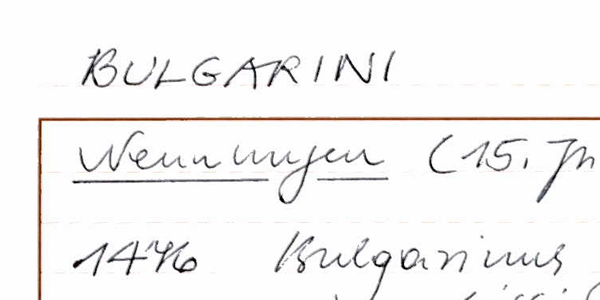 BULGARINI
Nennungen (15. Jh
1476 Bulgarinus